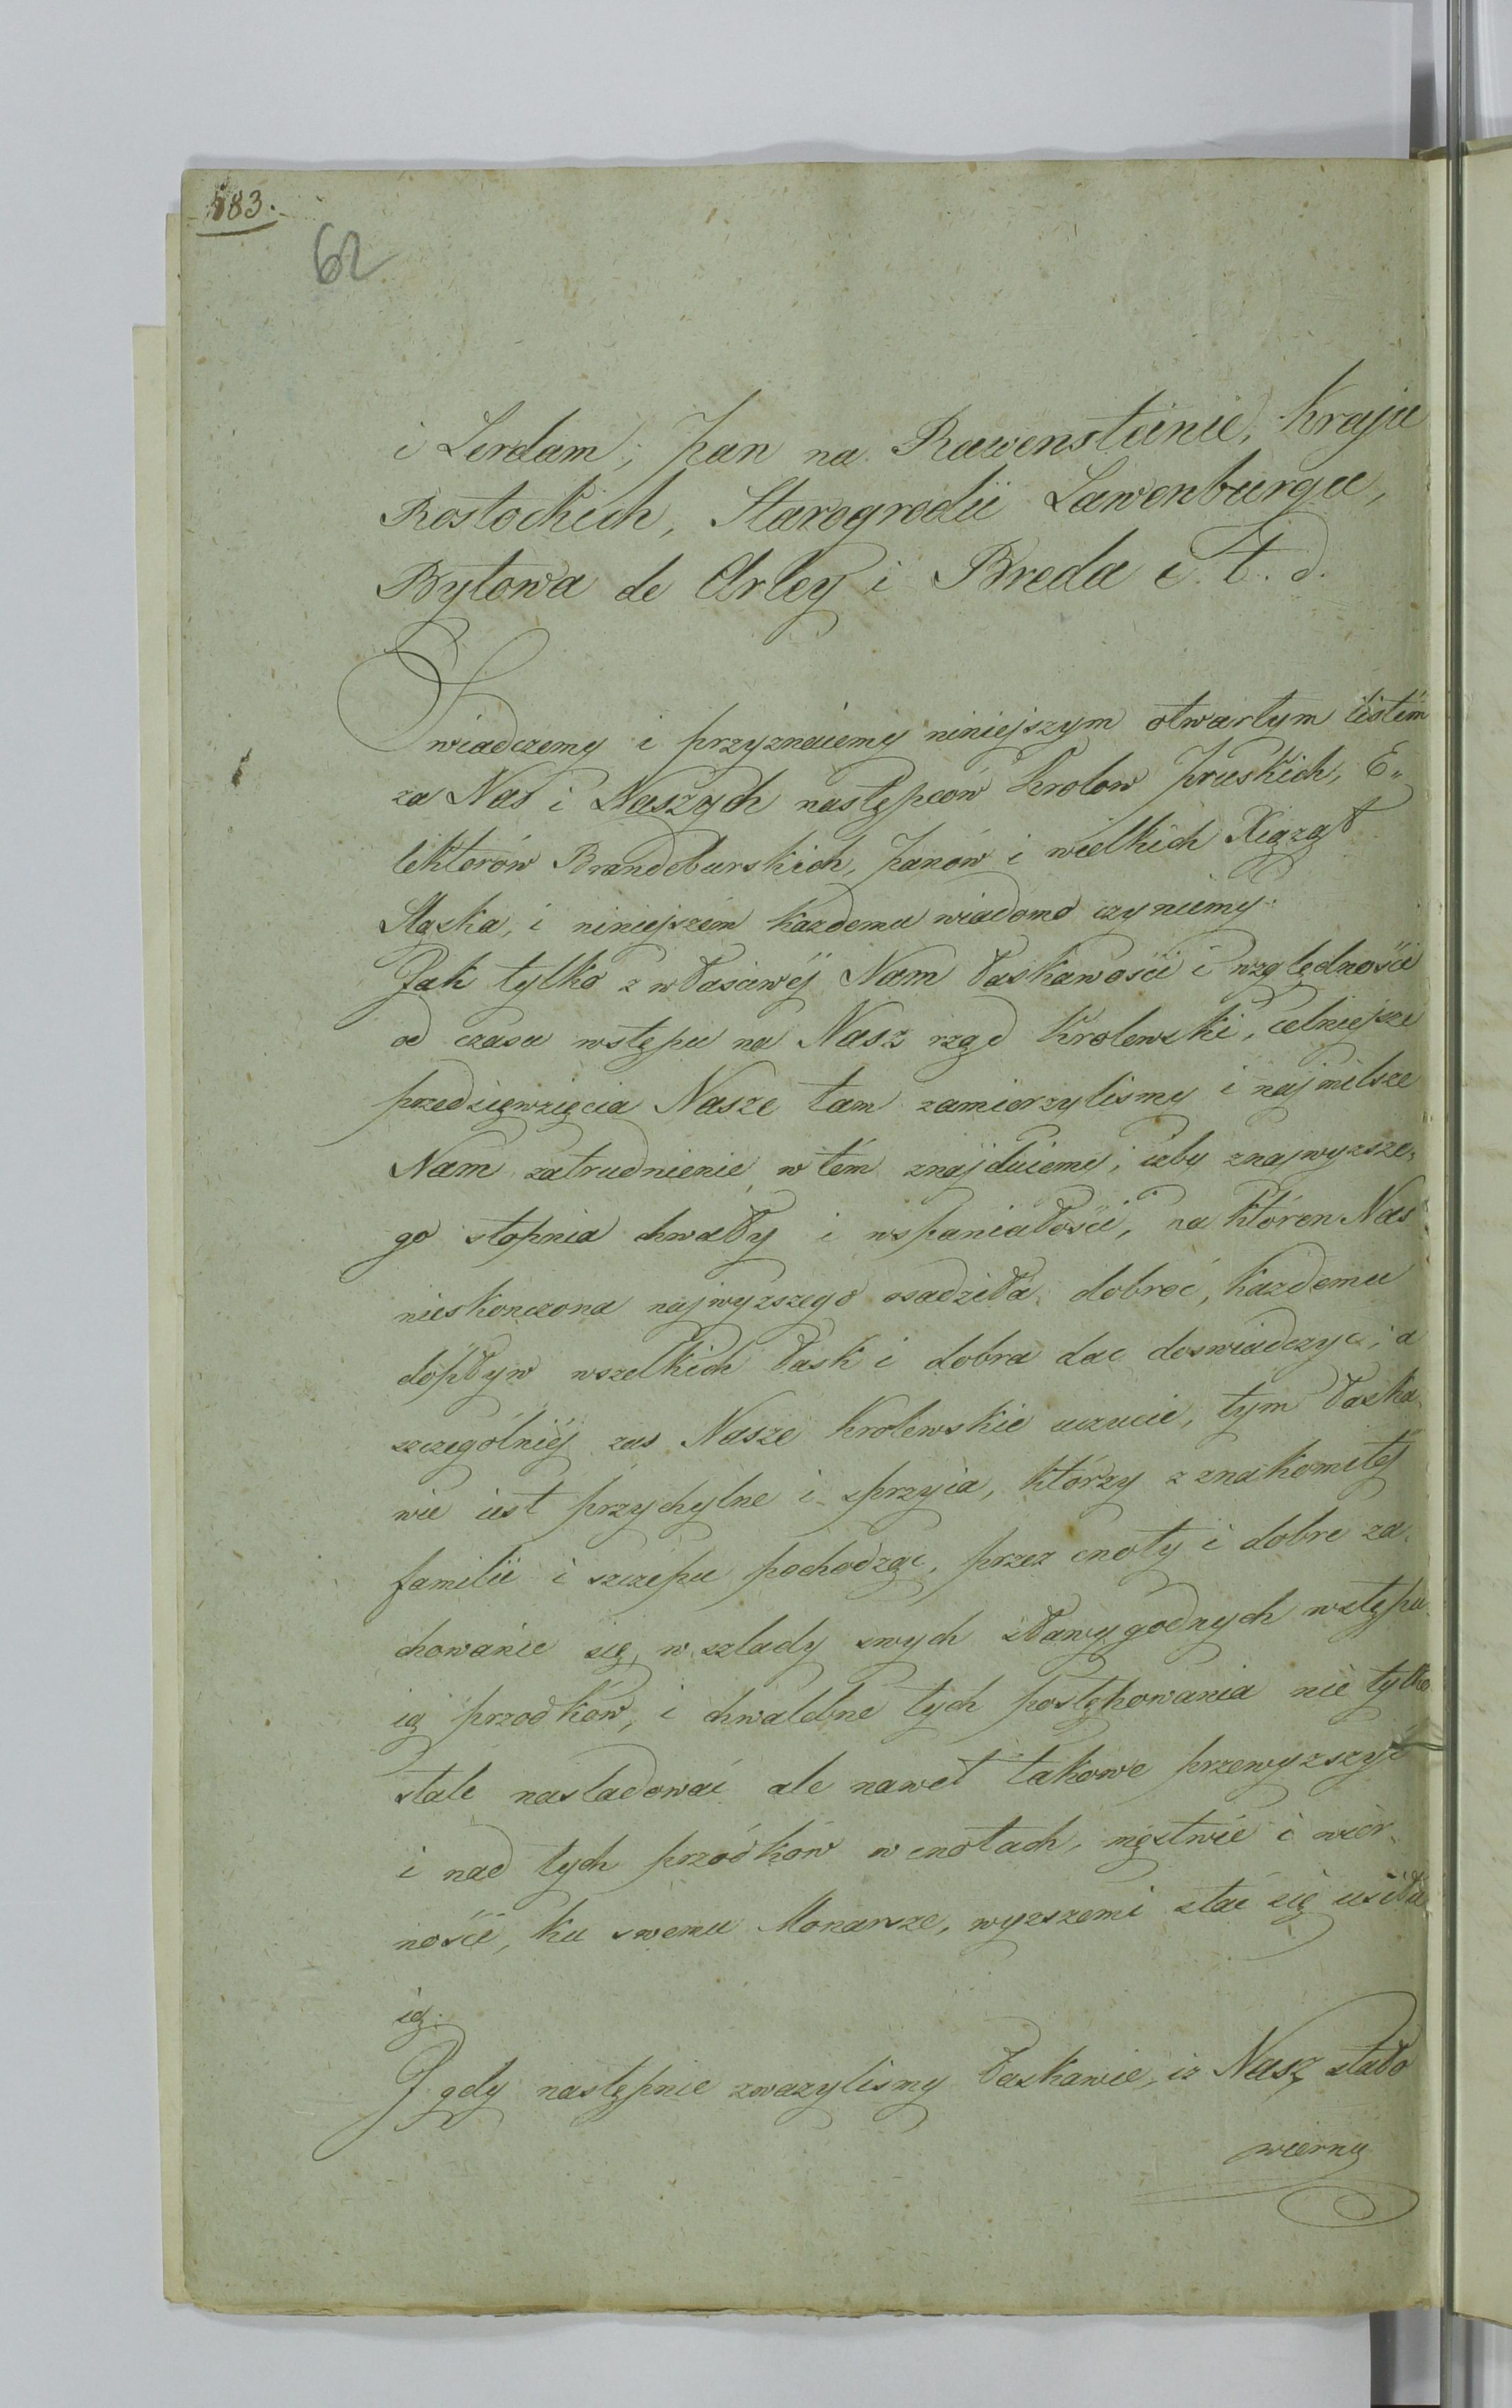 583.
62
i Lerdam; Pan na Rawensteinie, Kraju
Rostockich, Starogrodii Lawenburgu,
Bytowa de Arley i Breda i. t. d.
Swiadczemy i przyznaiemy niniejszym otwartym listem
za Nas i Naszych następców Krolow Pruskich, E„
lektorów Brandeburskich, Panów i wielkich Xiąząt
Sląska, i niniejszém kazdemu wiadomo czyniemy:
Jak tylko z właściwéj Nam łaskawości i względności
od czasu wstępu na Nasz rząd Krolewski, celniejsze
przedsięwzięcia Nasze tam zamierzylismy i najmilsze
Nam zatrudnienie w tém znajduiemy, izby z najwyzsze„
go stopnia chwały i wspaniałości, na któren Nas
nieskonczona najwyzszego osadziła dobroć, kazdemu
dopływ wszelkich łask i dobra dac doswiadczyc; a
szczególniéj zas Nasze Krolewskie uczucie, tym łaska„
wie iest przychylne i sprzyia, którzy z znakomitéj
familii i szczepu pochodząc, przez cnoty i dobre za„
chowanie się, w szlady swych sławygodnych wstępu„
ią przodków, i chwalebne tych postępowania nie tylko
stale nasladować ale nawet takowe przewyzszyć
i nad tych przodków w cnotach, męztwie i wier„
ności, ku swemu Monarsze, wyzszemi stać się usiłu
ią.
I gdy następnie zwazylismy łaskawie, iz Nasz stało
wierny